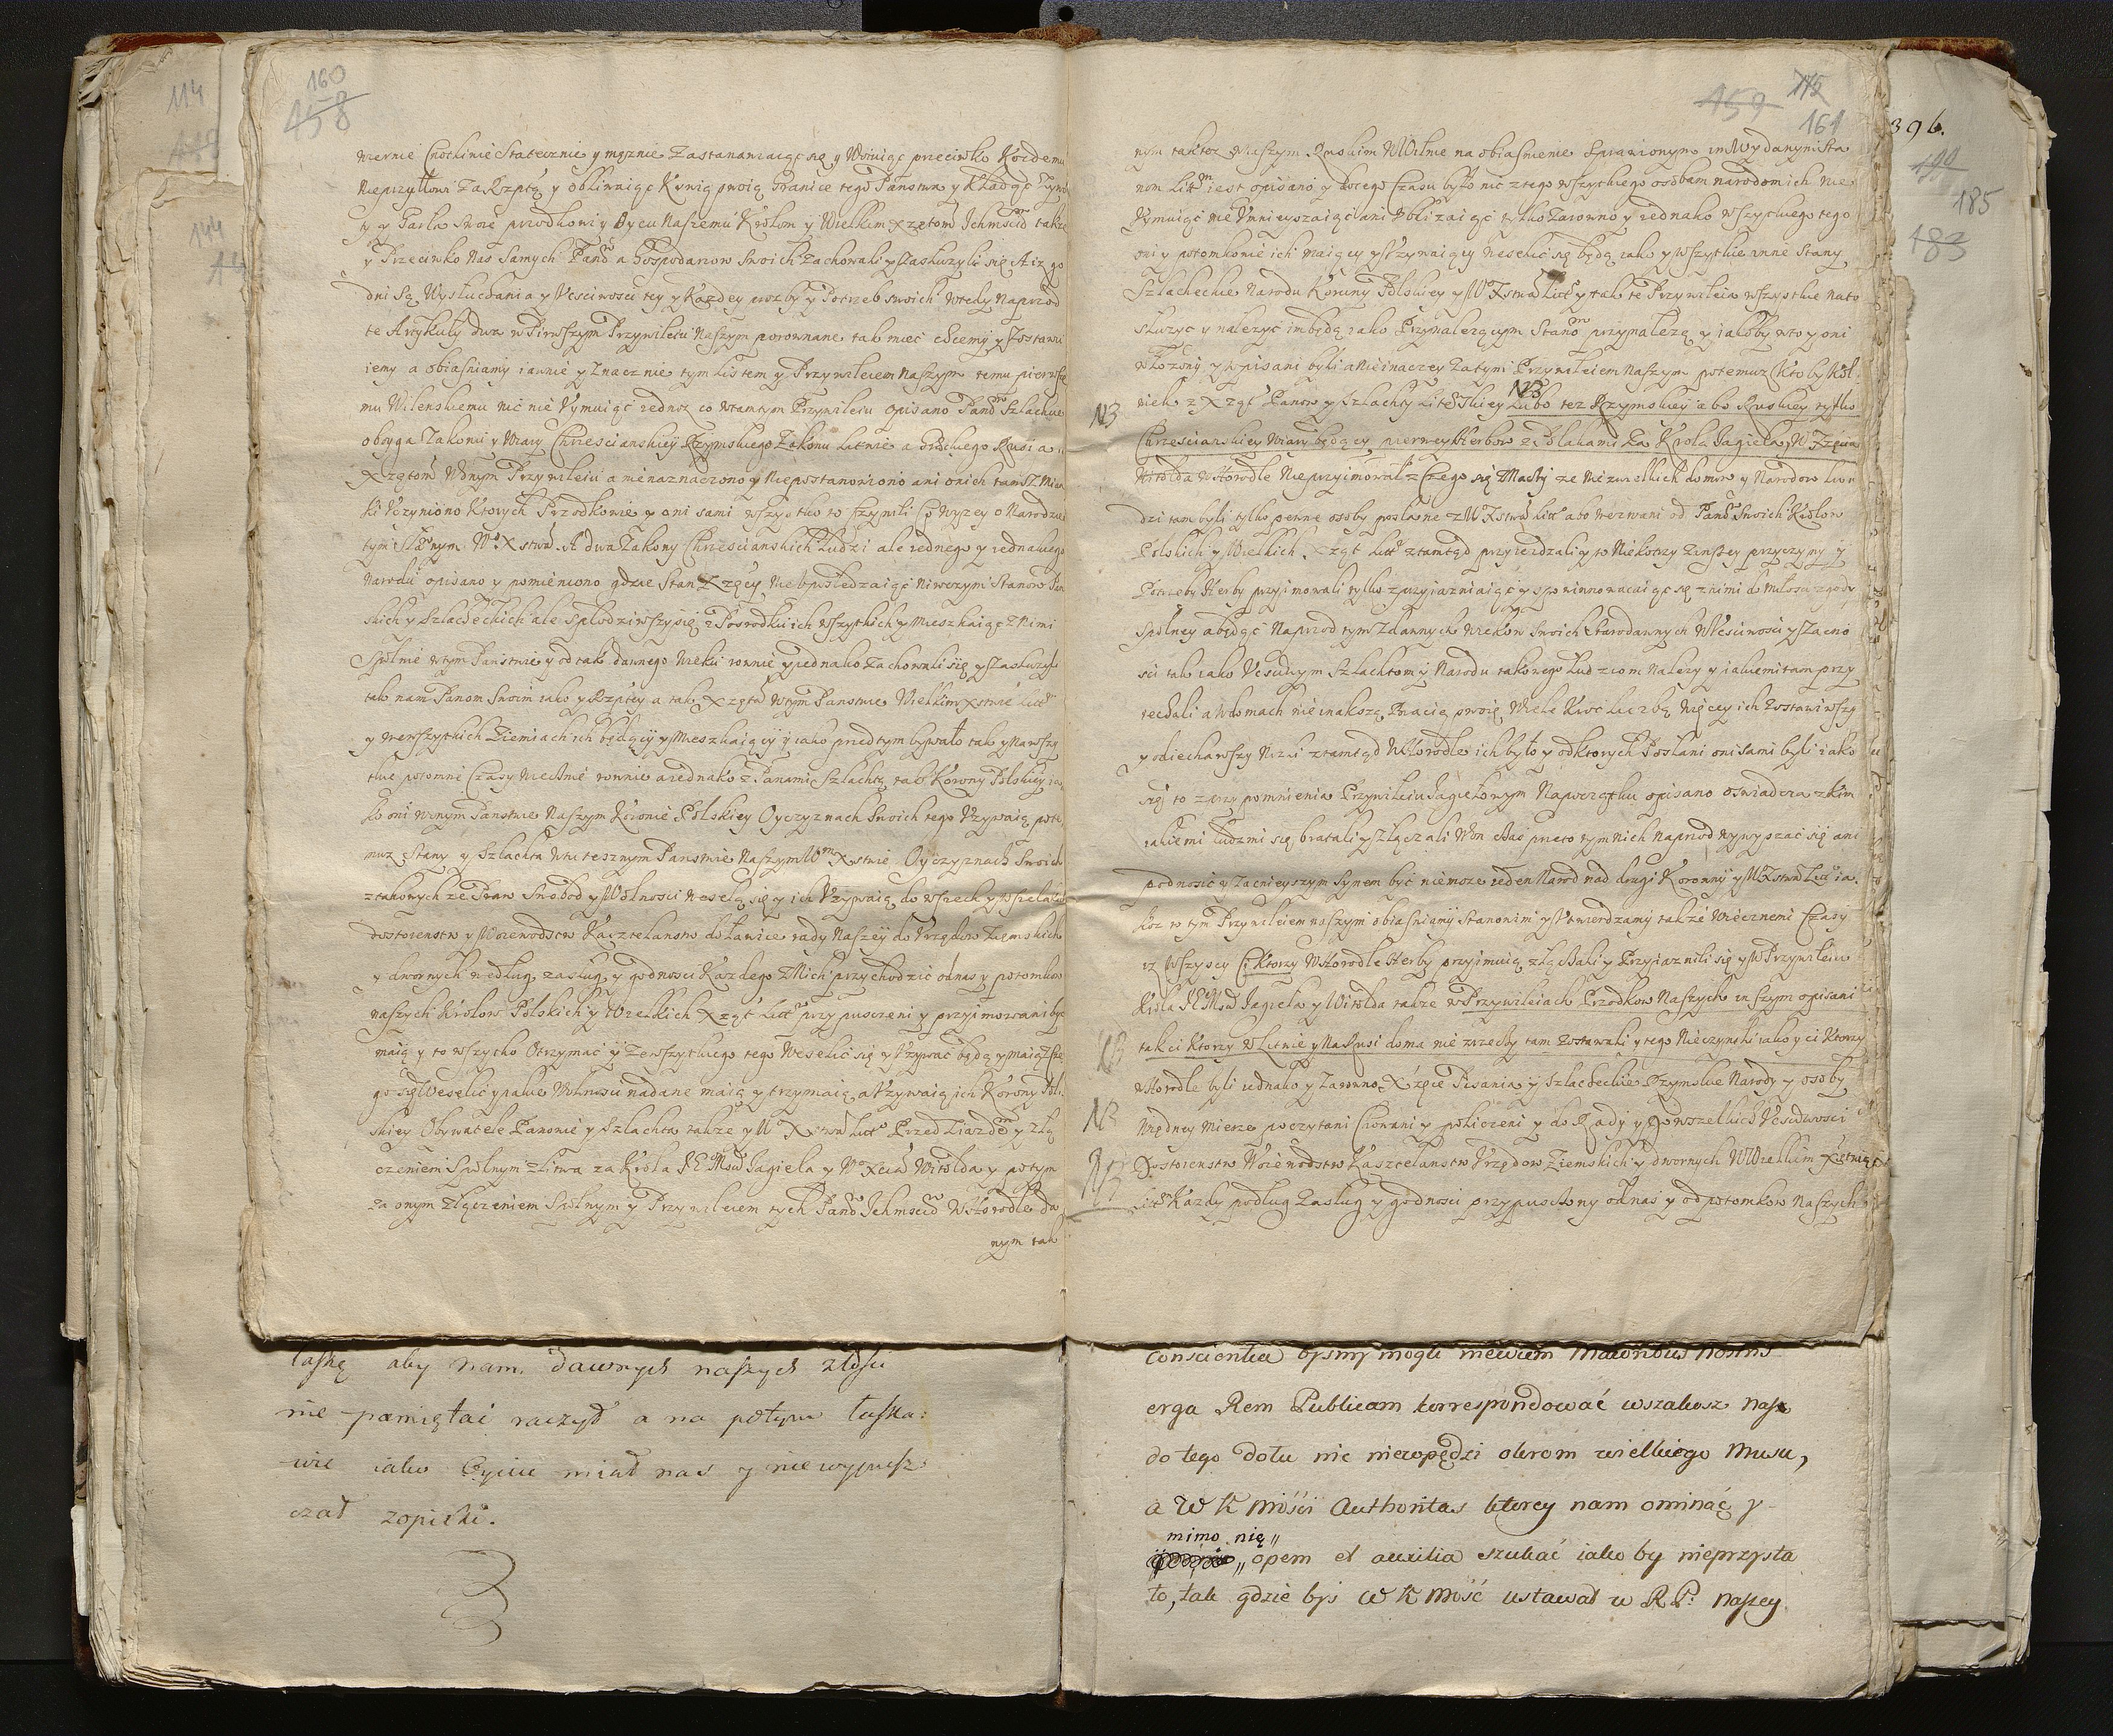 160
158
wiernie Cnotliwie Statecznie y męznie Zastanawiaiąc się y Woiuiąc przeciwko Kozdemu
Nieprzyiacielowi Za Rzptą y obliwaiąc Krwią swoią Granice tego Panstwa y Kładąc
ty y Garła Swoie przodkowi y Oycu Naszemu Krolom y Wielkim Xzętom Ichmsciom także
y Przeciwko Nas Samych Panow a Hospodarow Swoich Zachowali y Zasłuzyli się A iz go
dni Są Wysłuchania y Ucsciwosci tey y Kazdey prozby y Potrzeb swoich wtedy Naprzod
te Artykuły dwa w Pierwszym Przywileiu Naszym porownane tak miec chcemy y Zostawu
iemy a obiasniamy iawnie y Znacznie tym Listem y Przywileiem Naszym temu pierwsze
mu Wilenskiemu nic nie Uymuiąc iednoz co wtamtym Przywileiu opisano Panow Szlachcie
oboyga Zakonu y Wiary Chrzescianskiey Rzymskiego Zakonu Litwie a Greckiego Rusi a
Xzętom Wonym Przywileiu a nienaznaczono y Niepostanowiono ani onich tam
ki Uczyniono Ktorych Przodkowie y oni sami wszystko to czynili Co wyzey o Narodzie
tym Sławnym W X stwa A dwa Zakony Chrzescianskich Ludzi ale iednego y iednakiego
Narodu opisano y pomieniono gdzie Stan Xzęcy Nie Uposledzaiąc Niwczym Stanow Pan
skich y Szlacheckich ale Spłodziwszy się z Posrodku ich wszytkich y Mieszkaiąc Znimi
Spolnie wtym Panstwie y od tak dawnego wieku rownie y iednako Zachowali się y Zasłuzyli
tak nam Panom Swoim iako y Rzptey a tak Xzęta Wtym Panstwie Wielkim Xstwie Litt
y wewszytkich Ziemiach ich będący y Mieszkaiący y iako przed tym bywało tak y Nawszy
tkie potomne Czasy Wieczne rownie a iednako z Panami Szlachtą tak Korony Polskiey ia
ko oni wonym Panstwie Naszym Koronie Polskiey Oyczyznach Swoich tego Uzywaią potu
muz Stany y Szlachta wtuteszym Panstwie Naszym W Xstwie Oyczyznach Swoich
z takowych ze Praw Swobod y Wolnosci Weselą się y ich Uzywaią do wszech y wszelakich
dostoienstw y Woiewodstw Kasztelanstw do ławice rady Naszey do Urzędow Ziemskich
y dwornych według zasług y godnosci Kazdego z Nich przychodzic od nas y potomkow
naszych Krolow Polskich y Wielkich Xząt Litt przypuszczeni y przyimowani być
maią y to wszytko Otrzymać y Zewszytkiego tego Weselić się y Uzywać będą y maią Cze
go się Weselić y iakie Wolnosci nadane maią y trzymaią a Uzywaią ich Korony Pol
skiey Obywatele Panowie y Szlachta także y W Xstwa Litt Przed Ziazdem y Złą
czeniem Spolnym z Litwa za Krola JEMsci Jagiela y W Xcia Witolda y potym
za onym złączeniem Spolnym y Przywileiem tych Panow Ichmsciow w Horodle da
nym tak
159
175
161
nym takteż Naszym Ruskim w Wilnie na obiasnienie Sprawionym
Litt iest opisano y docego Czasu było nic z tego wszytkiego osobam narodom ich nie
Uymuiąc nie Umnieyszaiąc ani Ubliżaiąc tylko Zarowno y iednako wszytkiego tego
oni y potomkowie ich maiący y Uzywaiący weselić się będą iako y wszytkie inne Stany
Szlacheckie Narodu Korony Polskiey y W Xstwa Litt y tak te Przywileia wszystkie na to
słuzyć y nalezyć im będą iako Przynalezącym Stanom przynalezą y iakoby w to y oni
włozony y wpisani byli a nie inaczey Za tym Przywileiem Naszym potemuz Kto by Kol
wiek z Xząt Panow y Szlachty Litewskiey lubo tez Rzymskiey abo Ruskiey tylko
NB
NB
Chrzescianskiey Wiary będący pierwey Herbow z Polakami za Krola Jagiela y W Xzęcia
Witolda w Horodle Nieprzyimował z Czego się Znaczy ze Nie zwszelkich domow y Narodow Lu
dzi tam byli tylko pewne osoby posłane z W Xstwa Litt abo wezwani od Panow Swoich Krolow
Polskich y Wielkich Xząt Litt ztamtąd przyiezdzali y to Niektorzy Zinszey przyczyny y
Potrzeby Herby przyimowali tylko z przyiazniaiąc y spowinnowacaiąc się znimi do miłosci zgody
Spolney a będąc Naprzod tym Zdawnych wiekow Swoich Starodawnych Ucsciwosci y Zacno
sci tak iako Ucsciwym Szlachtom y Narodu takowego Ludziom Nalezy y iakiemi tam przy
iechali a w domach nie inakszą Bracią swoią Wiele Kroć liczbą więcey ich Zostawiwszy
y odiechawszy Nizli ztamtąd w Horodle ich było y od ktorych Posłani oni Sami byli iako
się to z przypomnienia Przywileiu Jagiełowym Na początku opisano oswiadcza zkim
iakiemi Ludzmi się bratali y Złączali Won czas przeto tym Nich Naprzod wywyszac się ani
podnosić y Zacnieyszym Synem być niemoze ieden Narod nad drugi Koronny y W Xstwa Litt ia
koz to tym Przywileiem naszym obiasniamy Stanowimy y Utwierdzamy także Wiecznemi Czasy
iz Wszyscy Ci Ktorzy w Horodle Herby przyimuią złączali y Przyiaznili się y w Przywileiu
Krola JEMsci Jagiela y Witolda takze w Przywileiach Przodkow Naszych inszym opisani
NB
tak ci Ktorzy w Litwie y Na Rusi doma nie zrzechy tam Zostawali y tego Nieczynili iako y ci Ktorzy
w Horodle byli iednako y Zarowno Xzęce Pisania y Szlacheckie Rzymskie Narody y osoby
NB
w iedney Mierze poczytani Chowani y policzeni y do Rady y Do wszelkich Ucsciwosci
NB
Dostoienstw Woiewodstw Kasztelanstw Urzędow Ziemskich y dwornych w Wielkim Xiestwie
Litt Kazdy podług Zasług y godnosci przypuszczony od nas y od potomkow Naszych
łaskę aby nam. dawnych naszych złosci
nie pamiętać raczył a na potym łaska:
wie iako Oyciec miał nas y nie wypusz
czał zopieki.
conscientia bysmy mogli niewiem Maioribus nostris
erga Rem Publicam korrespondować wszakosz nasz
do tego dołu nic niewpędzi okrom wielkiego Musu,
a W K Mości Authoritas ktorey nam ominąć y
mimo nię
opem et auxilia szukać iako by nieprzysta
to, tak gdzie byś W K Mość ustawał w R P. naszey
114
144
396.
190
185
183